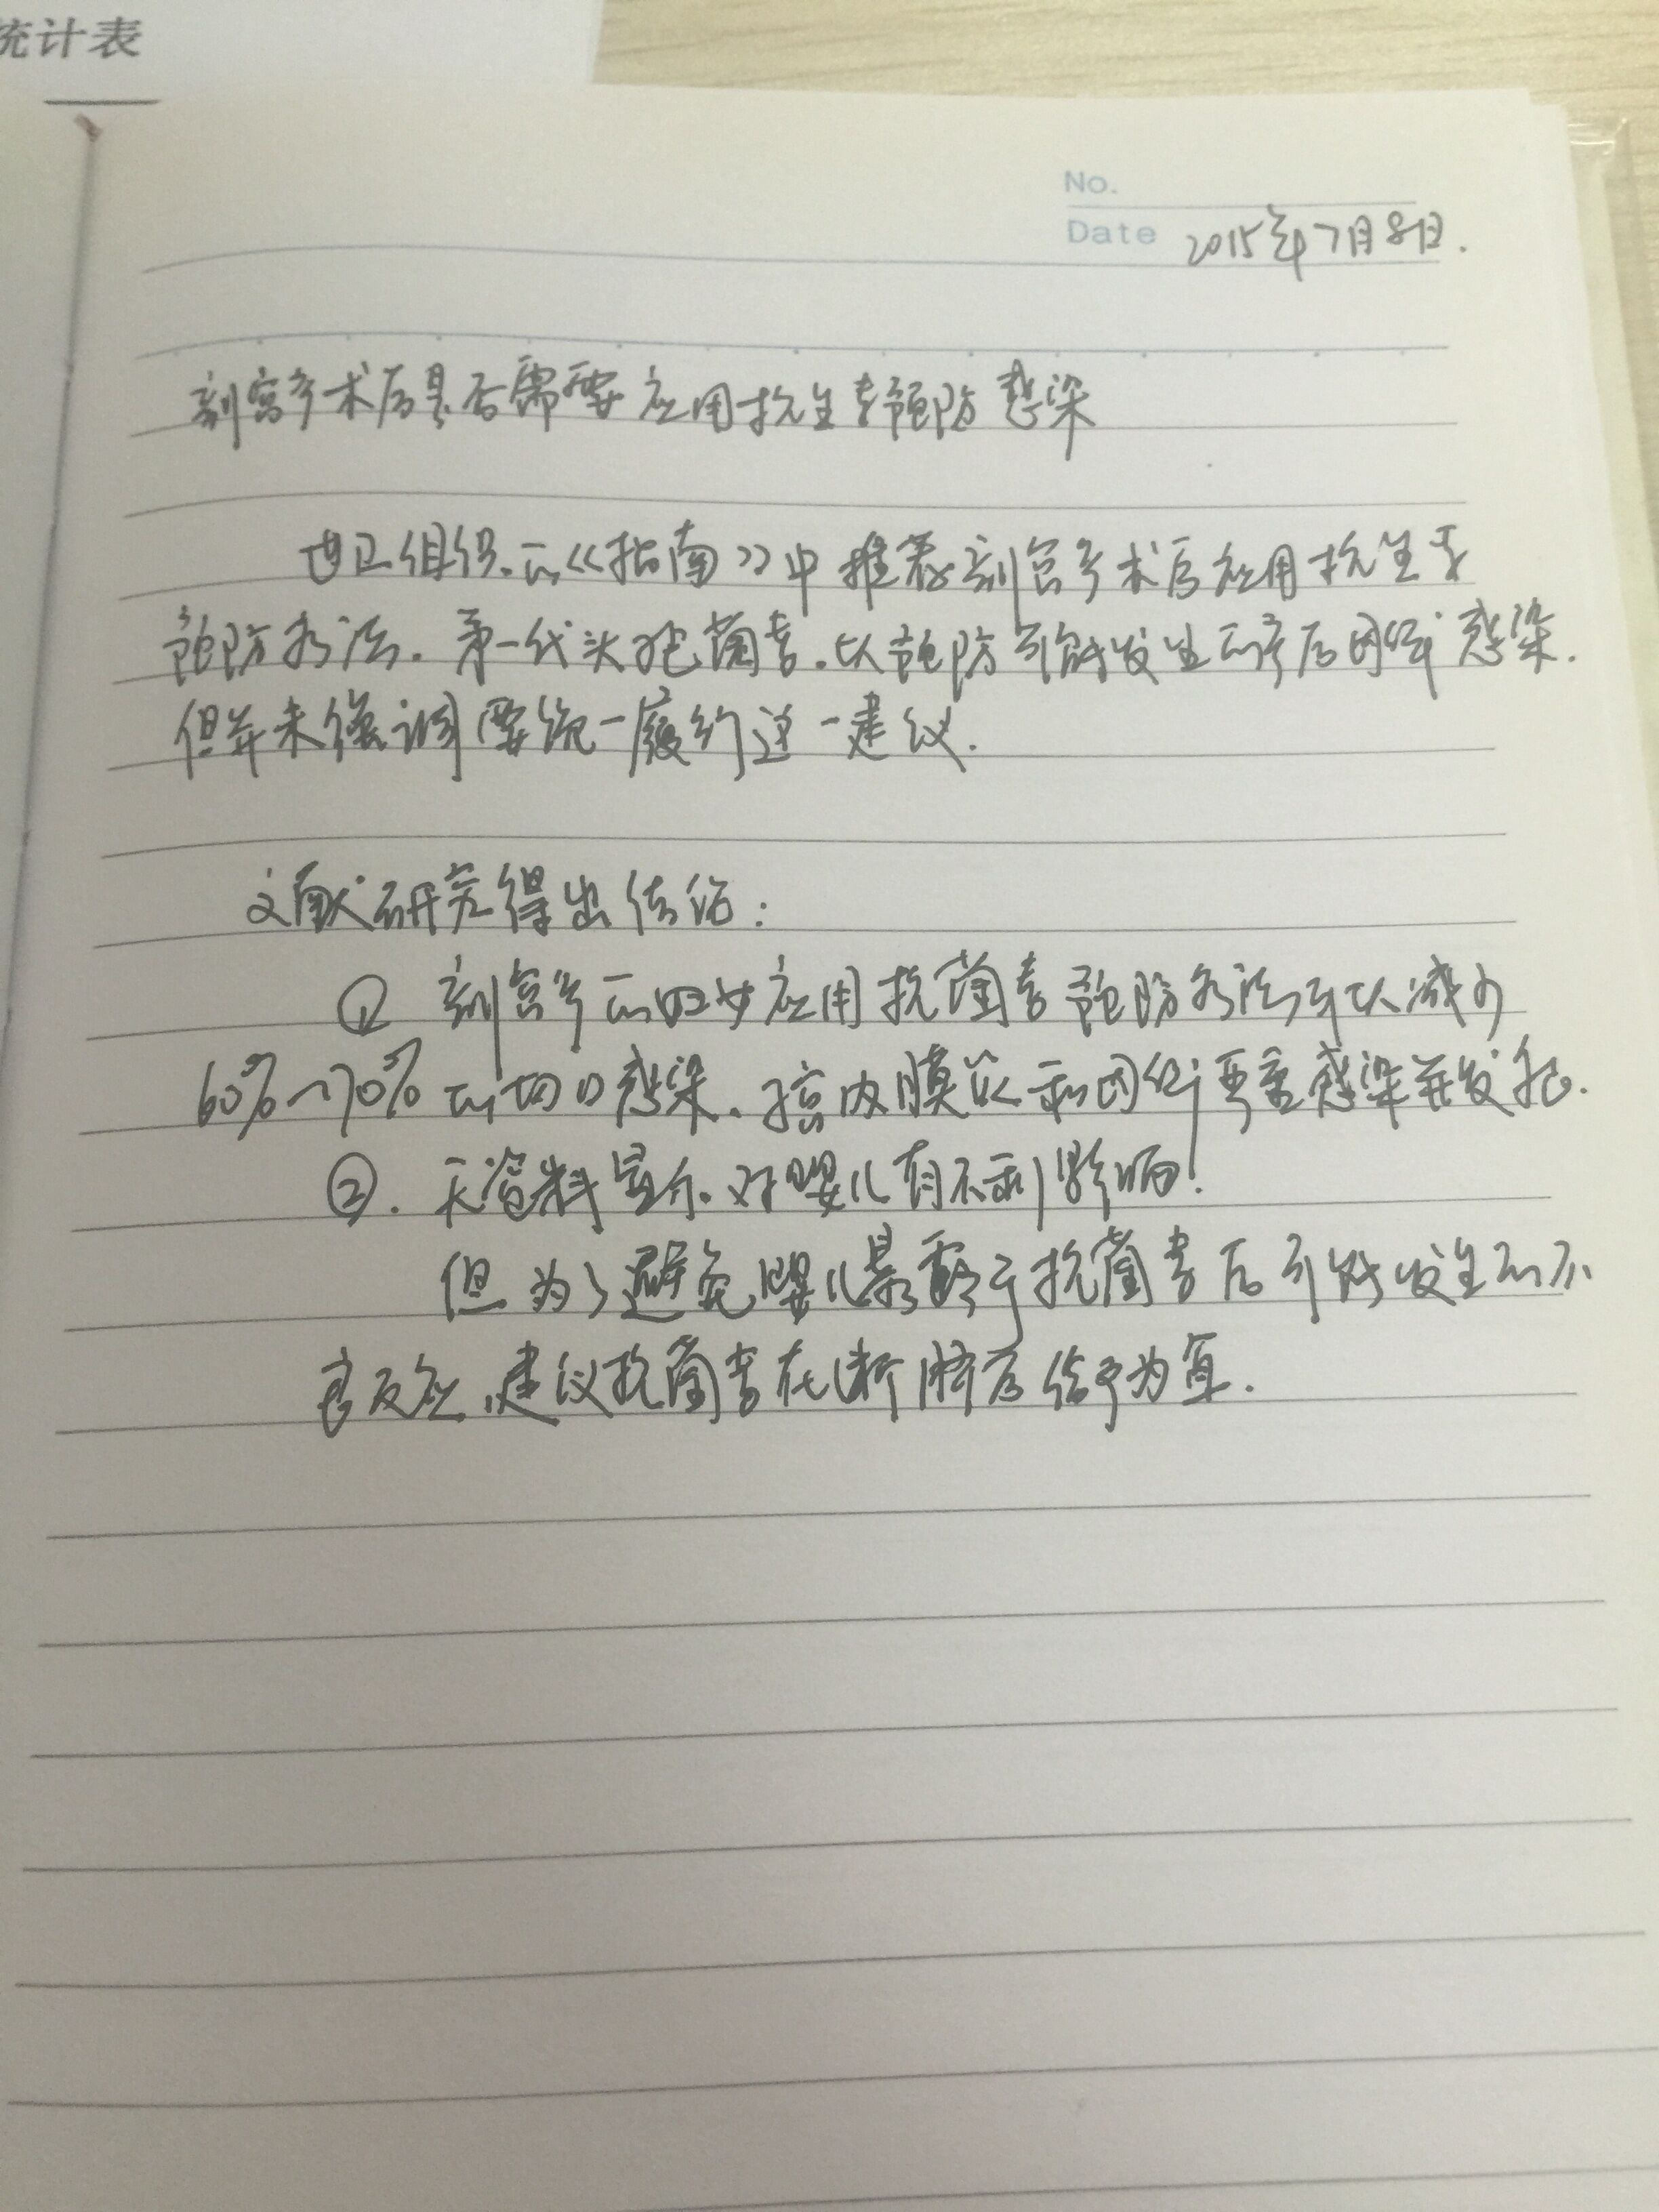 统计表
No.
Date 2015年7月8日.
剖宫产术后是否需要应用抗生素预防感染
世卫组织的《指南》中推荐剖宫产术后应用抗生素
预防疗法. 第一代头孢菌素. 以预防可能发生的产后围组感染.
但并未强调要统一履约这一建议.
文献研究得出结论:
① 剖宫产的妇女应用抗菌素预防疗法可以减少
60%~70%的切口感染、子宫内膜炎和因组严重感染并发症.
②. 无资料显示. 对婴儿有不利影响!
但为了避免婴儿暴露于抗菌素后可能发生的不
良反应, 建议抗菌素在断脐后给予为宜.